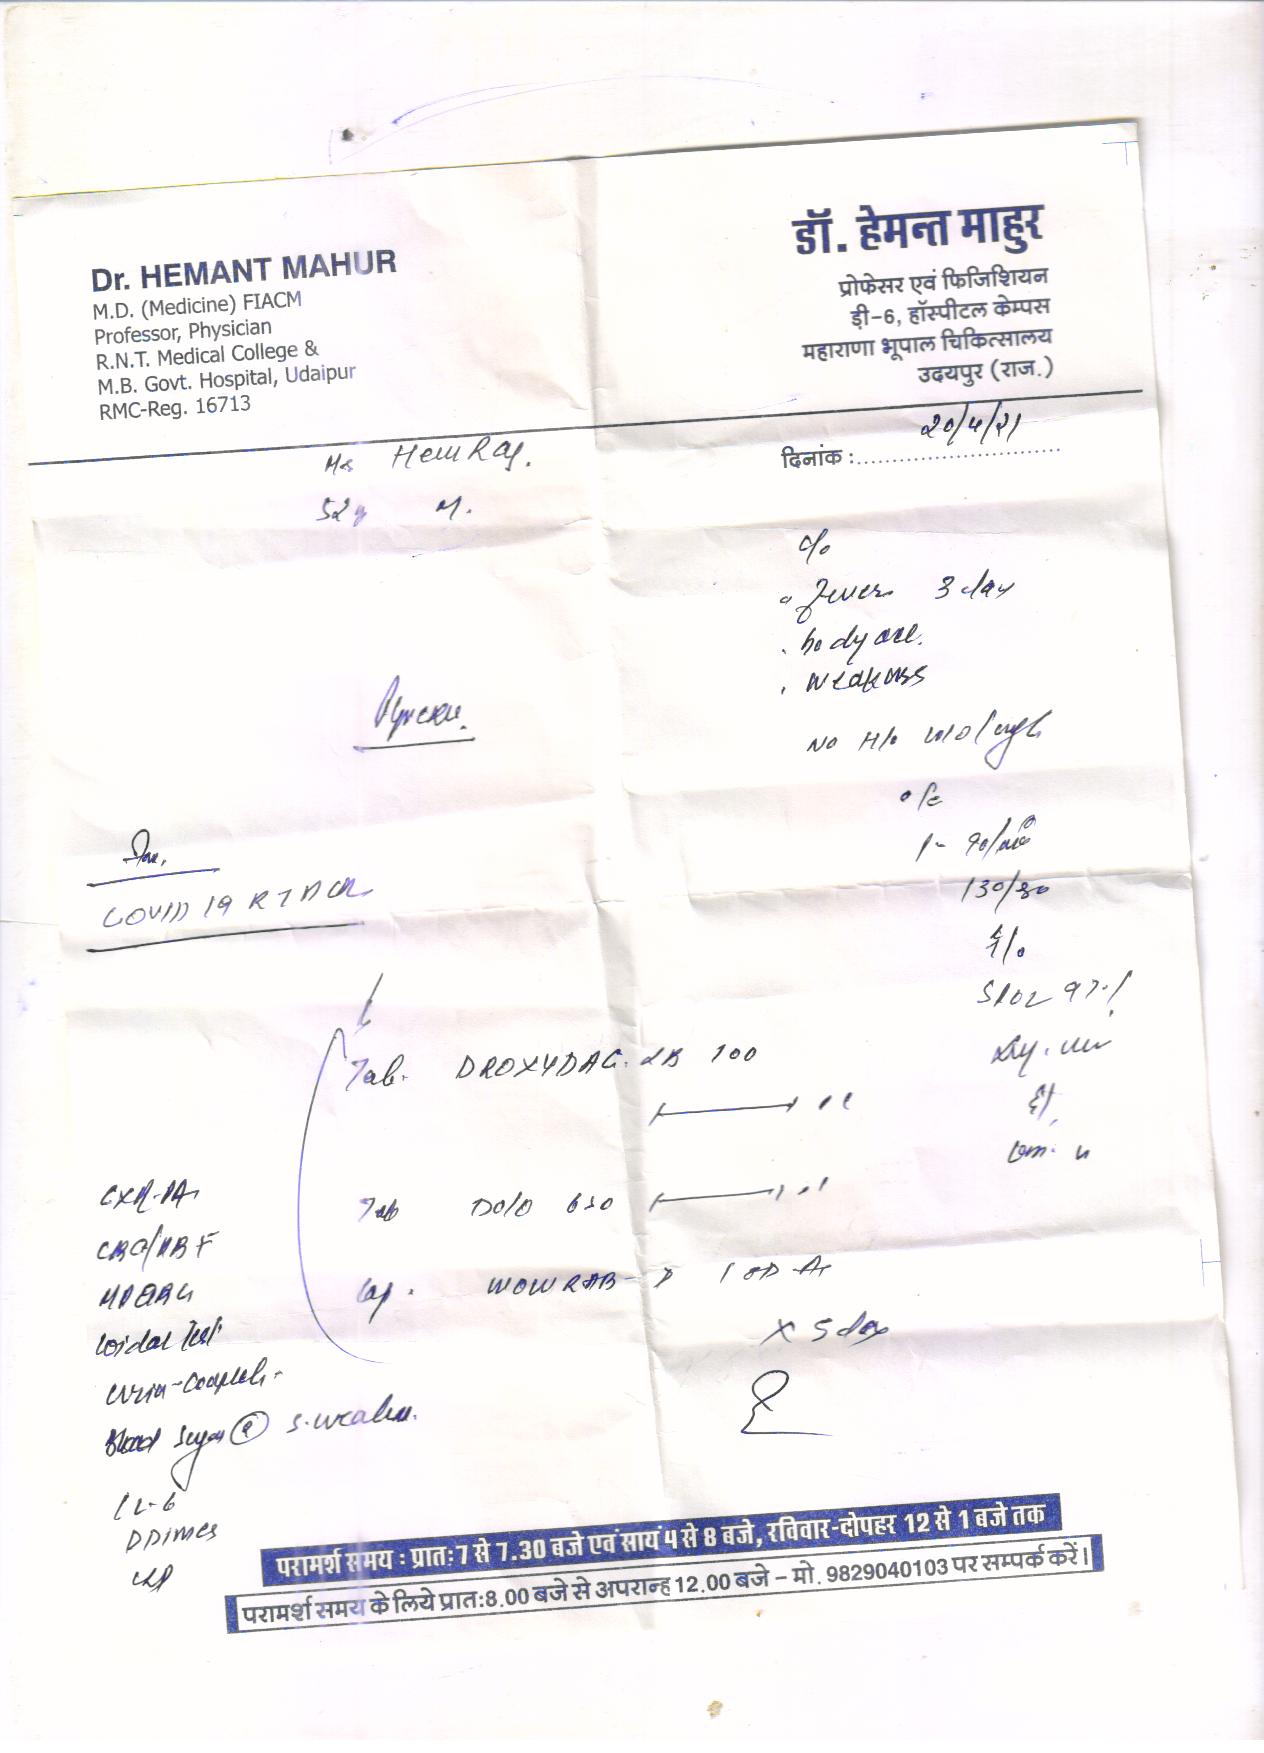 Dr. HEMANT MAHUR
M.D. (Medicine) FIACM
Professor, Physician
R.N.T. Medical College &
M.B. Govt. Hospital, Udaipur
RMC-Reg. 16713
डॉ. हेमन्त माहुर
प्रोफेसर एवं फिजिशियन
डी-6, हॉस्पीटल केम्पस
महाराणा भूपाल चिकित्सालय
उदयपुर (राज.)
दिनांक : 20/4/21
Mr Hem Raj.
52 y M.
c/o
Fever 3 day
body ache.
weakness
No H/o cough
Pyrexia.
o/e
P- 90/min
130/80
SPO2 97%
Inv.
COVID 19 RTPCR
Tab. DROXYDAC. LB 100
Tab DOLO 650
Cap. WOWRAB-D 1 OD
x 5 day
CXR-PA
CBC/PBF
Widal Test
Urin-Complete
Blood Sugar (R) S. urea
IL-6
D Dimer
परामर्श समय : प्रातः 7 से 7.30 बजे एवं सायं 4 से 8 बजे, रविवार-दोपहर 12 से 1 बजे तक
परामर्श समय के लिये प्रातः 8.00 बजे से अपरान्ह 12.00 बजे - मो. 9829040103 पर सम्पर्क करें।